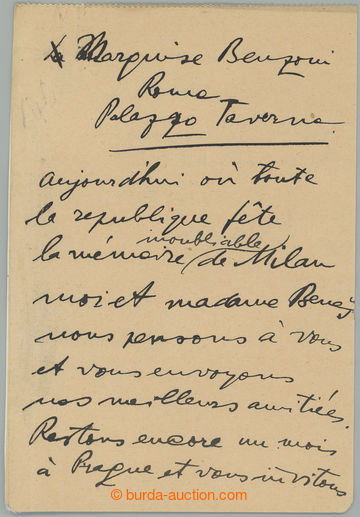 Marquise Benzoni
Roma
Palazzo Taverna
aujourd'hui où toute
la republique fête
inoubliable
la mémoire de Milan
moi et madame Beneš
nous pensons à vous
et vous envoyons
nos meilleurs amitiées.
Restons encore un mois
à Prague et vous invitons
© burda-auction.com